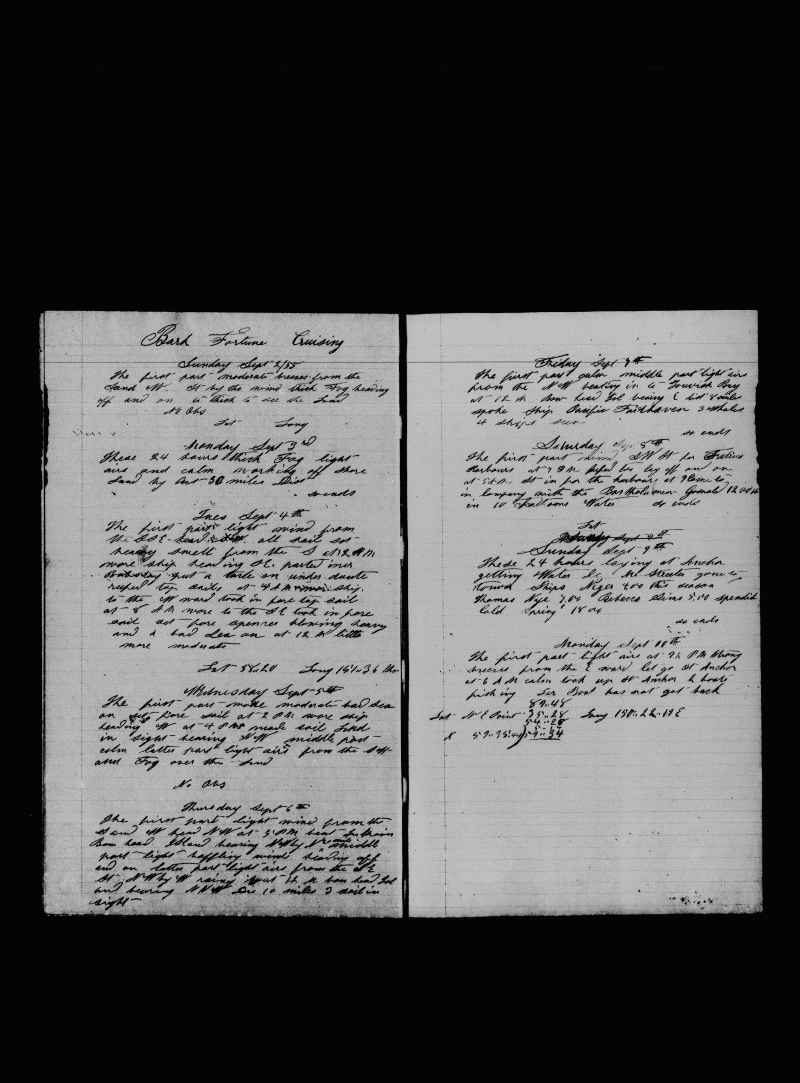 Bark Fortune Cruising
Sunday Sept 2/55
The first part moderate breeses from the
S and W. St by the wind thick Fog heading
off and on to thick to see the Land
No Obs
Lat Long
Monday Sept 3rd
These 24 hours thick Fog light
airs and calm working off shore
Land by Act 30 miles Dist
so ends
Tues Sept 4th
The first part light wind from
the S S E head all sail set
heavy smell from the S at 12 P.M
wore ship heading S.E. parted iner
put a on under double
reefed top sails at 4 A M ship
to the W ward took in fore top sail
at 8 A M wore to the S E took in fore
sail set fore spencer blowing heavy
and a bad Sea on at 12 M little
more moderate
Lat 58.20 Long 151.36
Wednesday Sept 5th
The first part more moderate bad sea
on set fore sail at 2 P.M. wore ship
heading W at 4 P.M. made sail Land
in sight bearing N.W middle part
calm latter part light airs from the S W
and Fog over the Land
No Obs
Thursday Sept 6th
The first part light wind from the
S and W head N W at 5 P.M.
Bow head Island bearing N W by N middle
part light baffling winds heading off
and on latter part light airs from the S E
St. N W by W at 12 M bow head Isl
and bearing N N W Dis 10 miles 3 sail in
sight
Friday Sept 7th
The first part calm middle part light airs
from the N W beating in to Bay
at 12 M Bow head Isl bearing E dist 8 miles
spoke Ship Pacific Fairhaven 3 whales
4 ships seen
so ends
Saturday Sep 8th
The first part S W St for
Harbours at 7 P M lay off and on
at 5 A M St in for the harbour at 9 Came to
in Company with the Bartholomew Gosnold 1200
in 10 Fathoms Water so ends
Sat
Sunday Sept 9th
These 24 hours laying at Anchor
getting Water &c Mr Streeter gone to
Ships Niger 400 this season
Thomas Nye 700 Rebecca Sims 500 Splendid
Cold Spring 1800
so ends
Monday Sept 10th
The first part light airs at 9 P M Strong
breeses from the E ward let go St Anchor
at 6 A M calm took up St Anchor 2 boats
fishing Boat has not got back
89..48
Lat N E Point 35..28 Long 158..22..19 E
54..20